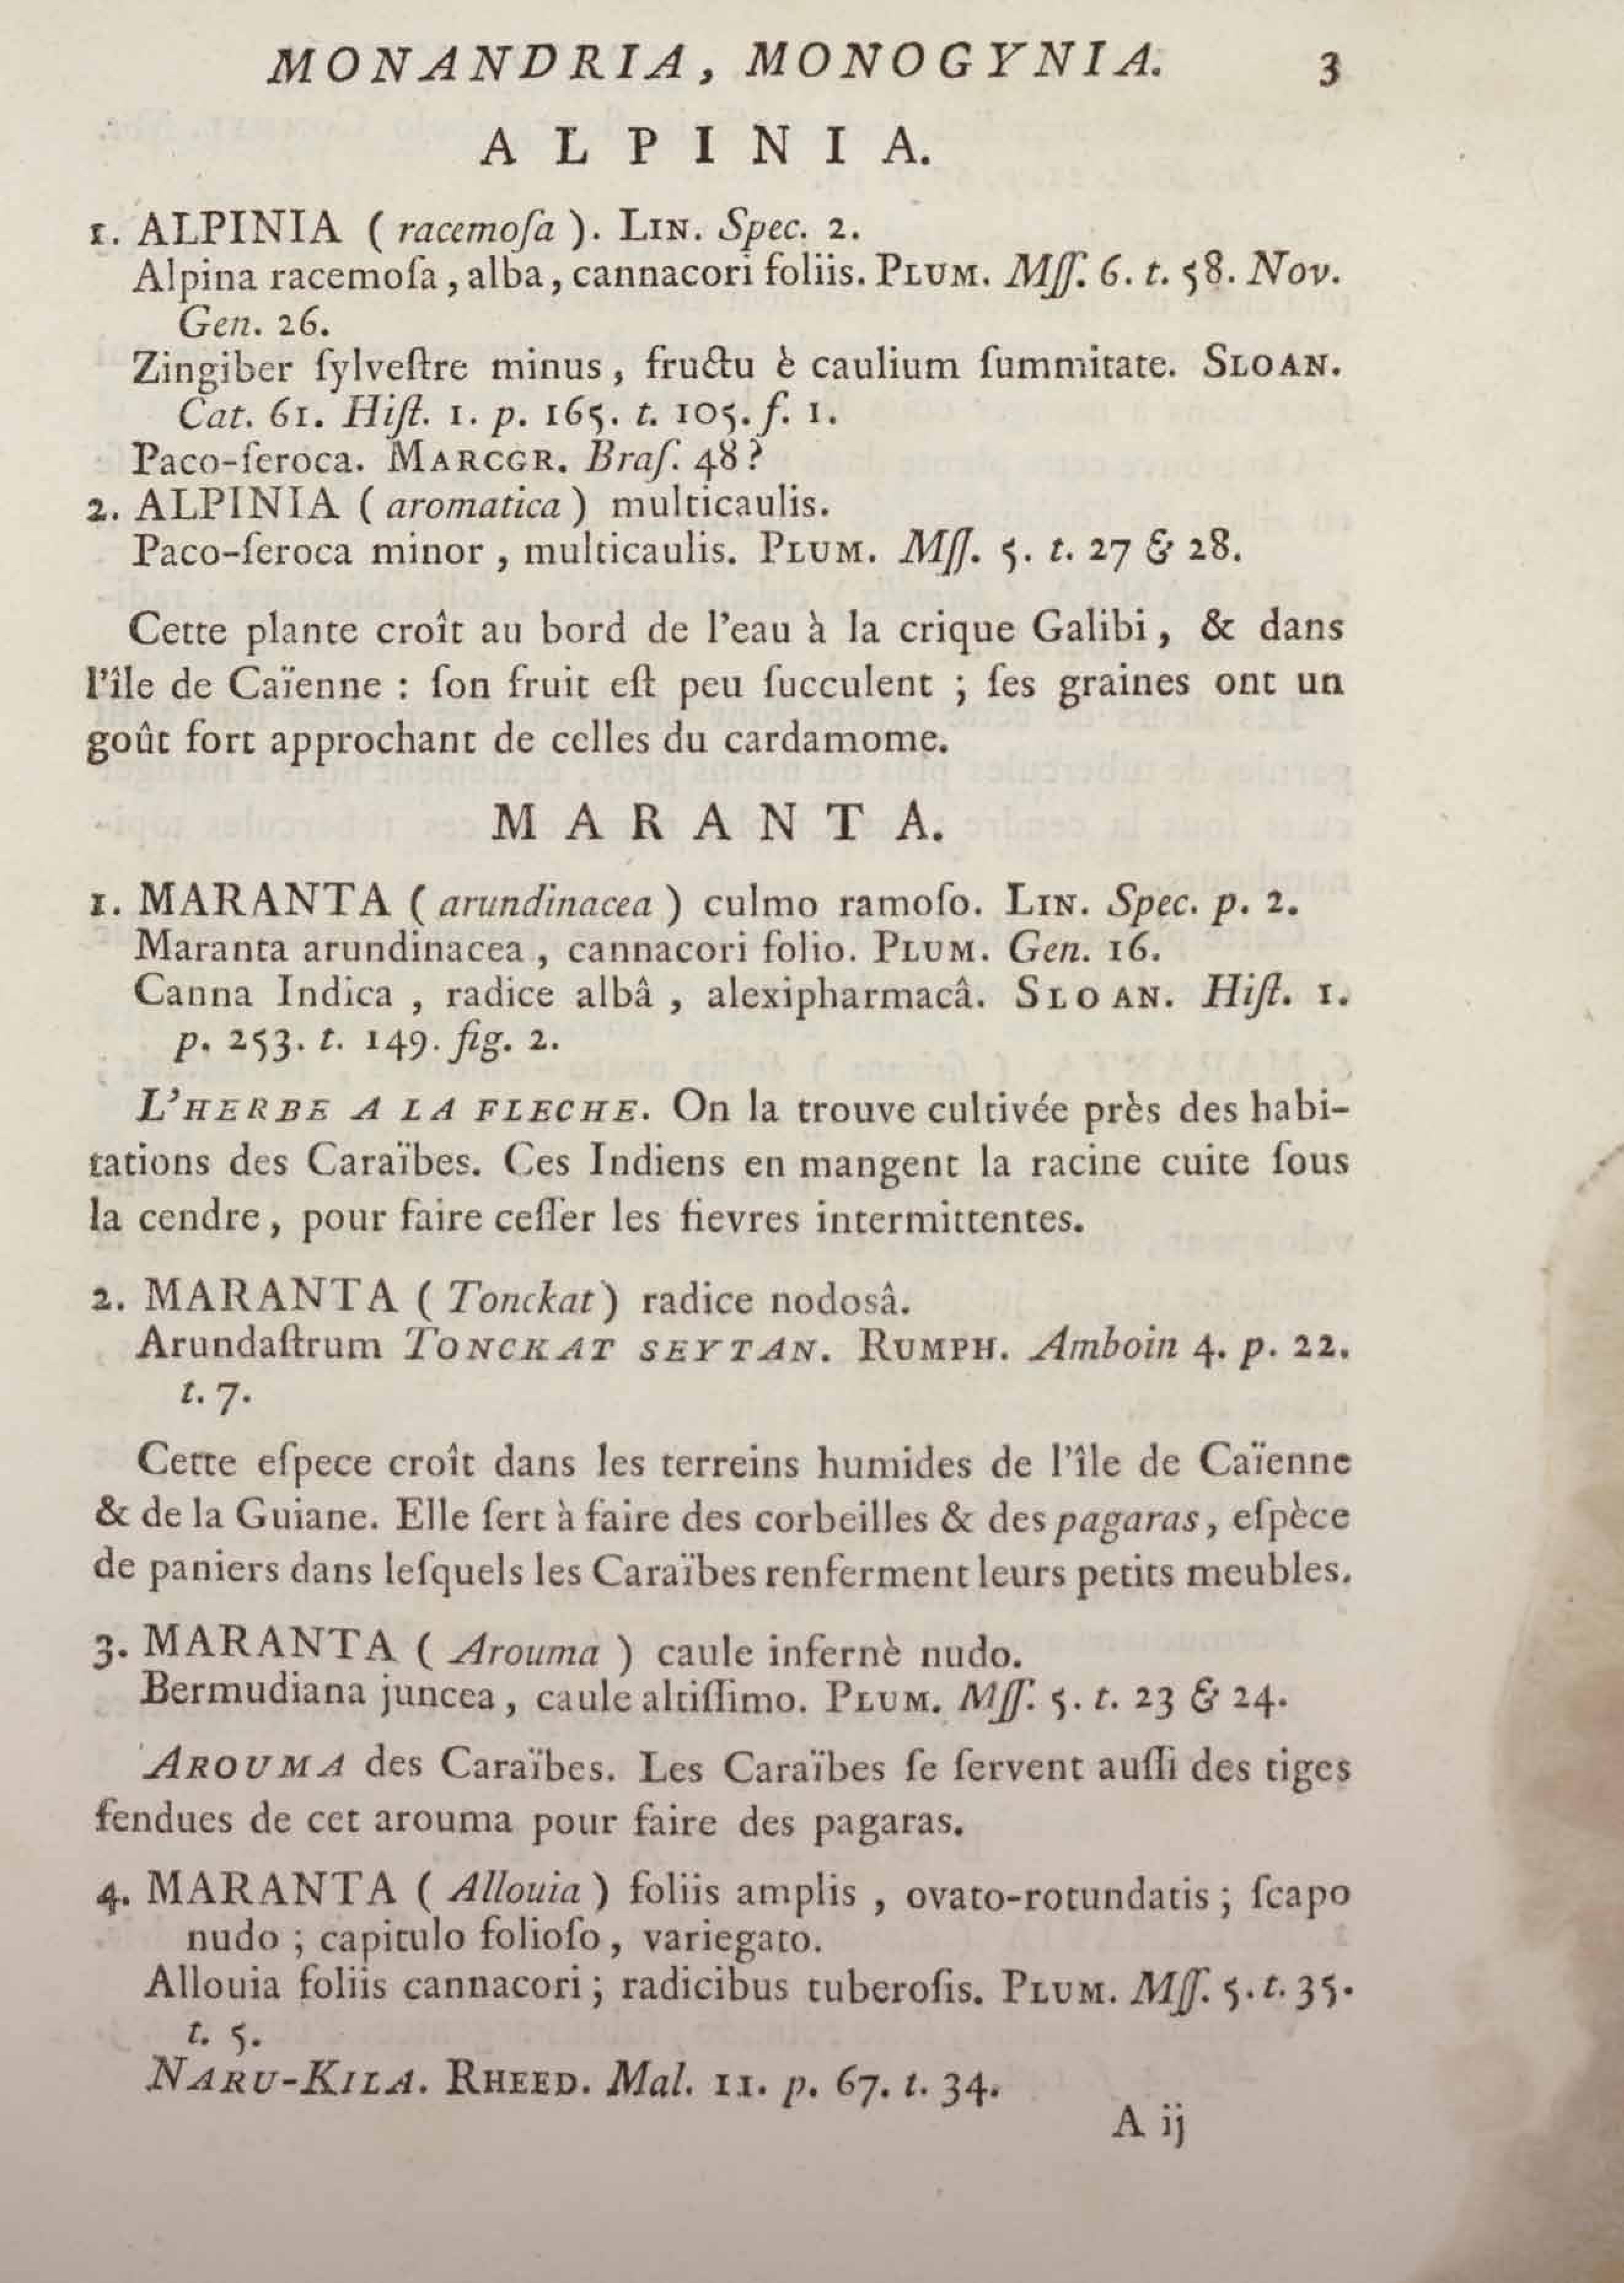 MONANDRIA, MONOGYNIA. 3
ALPINIA.
1. ALPINIA ( racemoſa ). LIN. Spec. 2.
Alpina racemoſa, alba, cannacori foliis. PLUM. Mſſ. 6. t. 58. Nov.
Gen. 26.
Zingiber ſylveſtre minus, fructu è caulium ſummitate. SLOAN.
Cat. 61. Hiſt. 1. p. 165. t. 105. f. 1.
Paco-ſeroca. MARCGR. Braſ. 48?
2. ALPINIA ( aromatica ) multicaulis.
Paco-ſeroca minor, multicaulis. PLUM. Mſſ. 5. t. 27 & 28.
Cette plante croît au bord de l'eau à la crique Galibi, & dans
l'île de Caïenne : ſon fruit eſt peu ſucculent ; ſes graines ont un
goût fort approchant de celles du cardamome.
MARANTA.
1. MARANTA ( arundinacea ) culmo ramoſo. LIN. Spec. p. 2.
Maranta arundinacea, cannacori folio. PLUM. Gen. 16.
Canna Indica, radice albâ, alexipharmacâ. SLOAN. Hiſt. 1.
p. 253. t. 149. fig. 2.
L'HERBE A LA FLECHE. On la trouve cultivée près des habi-
tations des Caraïbes. Ces Indiens en mangent la racine cuite ſous
la cendre, pour faire ceſſer les fievres intermittentes.
2. MARANTA ( Tonckat ) radice nodosâ.
Arundaſtrum TONCKAT SEYTAN. RUMPH. Amboin 4. p. 22.
t. 7.
Cette eſpece croît dans les terreins humides de l'île de Caïenne
& de la Guiane. Elle ſert à faire des corbeilles & des pagaras, eſpèce
de paniers dans leſquels les Caraïbes renferment leurs petits meubles.
3. MARANTA ( Arouma ) caule infernè nudo.
Bermudiana juncea, caule altiſſimo. PLUM. Mſſ. 5. t. 23 & 24.
AROUMA des Caraïbes. Les Caraïbes ſe ſervent auſſi des tiges
fendues de cet arouma pour faire des pagaras.
4. MARANTA ( Allouia ) foliis amplis, ovato-rotundatis ; ſcapo
nudo ; capitulo folioſo, variegato.
Allouia foliis cannacori ; radicibus tuberoſis. PLUM. Mſſ. 5. t. 35.
t. 5.
NARU-KILA. RHEED. Mal. 11. p. 67. t. 34.
A ij